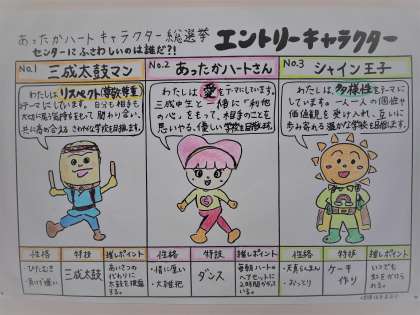 あったかハートキャラクター総選挙
センターにふさわしいのは誰だ?!
エントリーキャラクター
No.1 三成太鼓マン
わたしは、リスペクト(尊敬尊重)
をテーマにしています。自分も相手も
大切に思う気持ちをもって関わり合い、
共に高め合えるさわやかな学校を目指します。
性格
特技
推しポイント
ひたむき
負けず嫌い
三成太鼓
あいさつの
代わりに
太鼓を披露
する。
No.2 あったかハートさん
わたしは愛をテーマにしています。
三成中生と一緒に「利他
の心」をもって、相手のことを
思いやる、優しい学校を目指します。
性格
特技
推しポイント
・情に厚い
・大雑把
ダンス
毎朝ハートの
ヘアセットに
2時間かかって
いる。
No.3 シャイン王子
わたしは、多様性をテーマに
しています。一人一人の個性や
価値観を受け入れ、互いに
歩み寄れる温かな学校を目指します。
性格
特技
推しポイント
・天真らんまん
・おっとり
ケーキ
作り
いつでも
虹をかけら
れる。